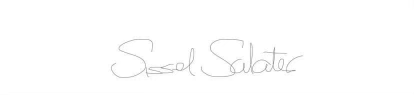 Sissel Salater